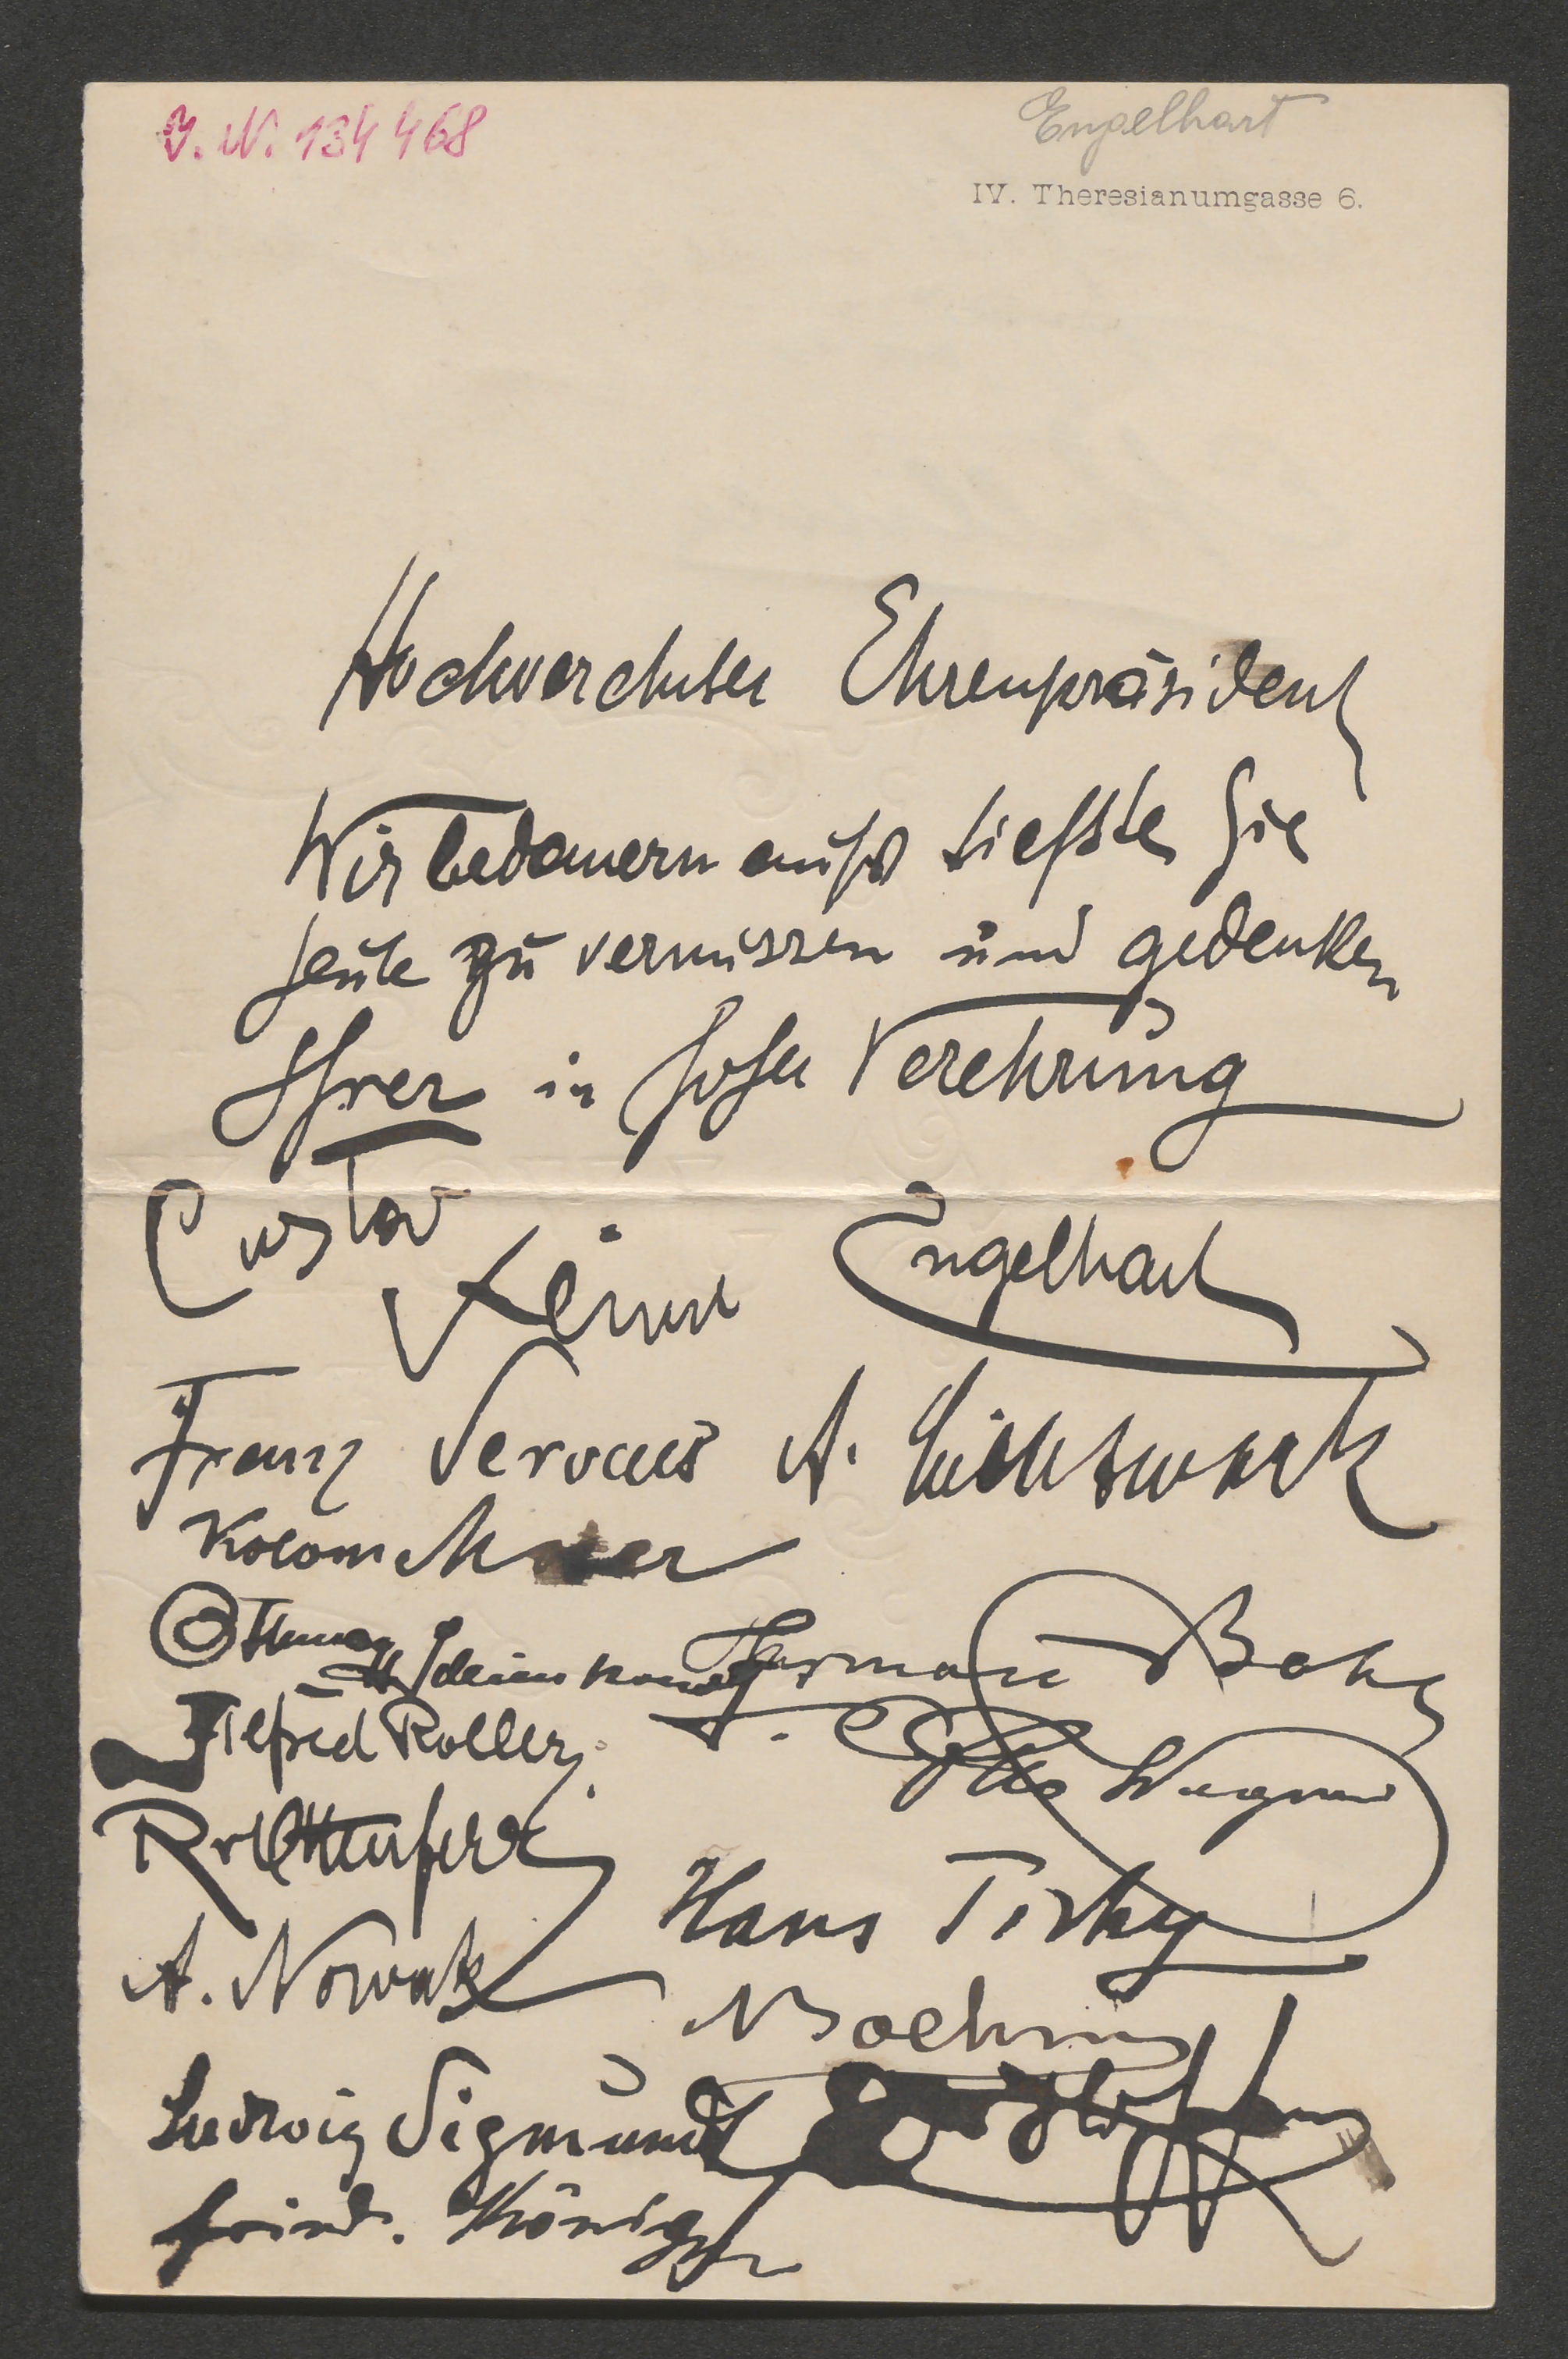 J. N. 134 468
Engelhart
IV. Theresianumgasse 6.
Hochverehrter Ehrenpräsident
Wir bedauern aufs tiefste Sie
heute zu vermissen und gedenken
Ihrer in hoher Verehrung
Gustav
Klimt Engelhart
Franz Servaes A. Lichtwark
Kolom Moser
Hermann Bahr
Alfred Roller
Otto Wagner
R v Ottenfeld
Hans Tichy
A. Nowak
Boehm
Ludwig Sigmundt
friedr. König